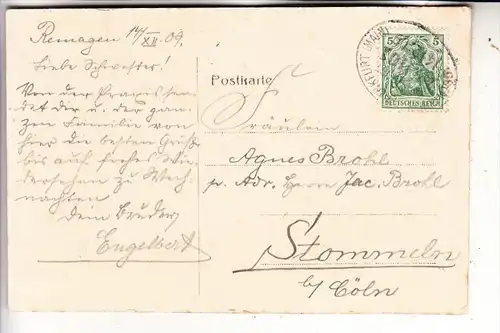 Remagen 14/XII. 09.
Liebe Schwester!
Von der Praxis sen-
det dir u. der gan-
zen Familie von
hier die besten Grüße
bis auf frohes Wie-
dersehen zu Weih-
nachten
Dein Bruder
Engelbert
Postkarte
5 5
DEUTSCHES REICH
FRANKFURT (MAIN)
Fräulein
Agnes Brohl
p. Adr. Herrn Jac. Brohl
Stommeln
b/ Cöln